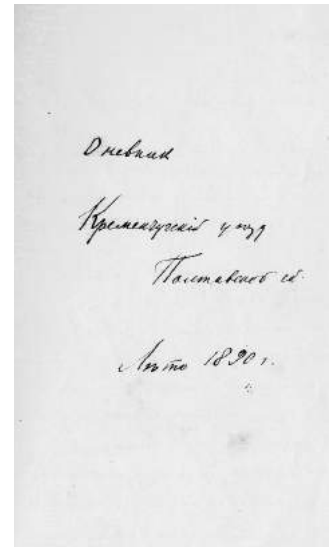 Дневник
Кременчугскій уѣзд
Полтавской г.
Лѣто 1890 г.